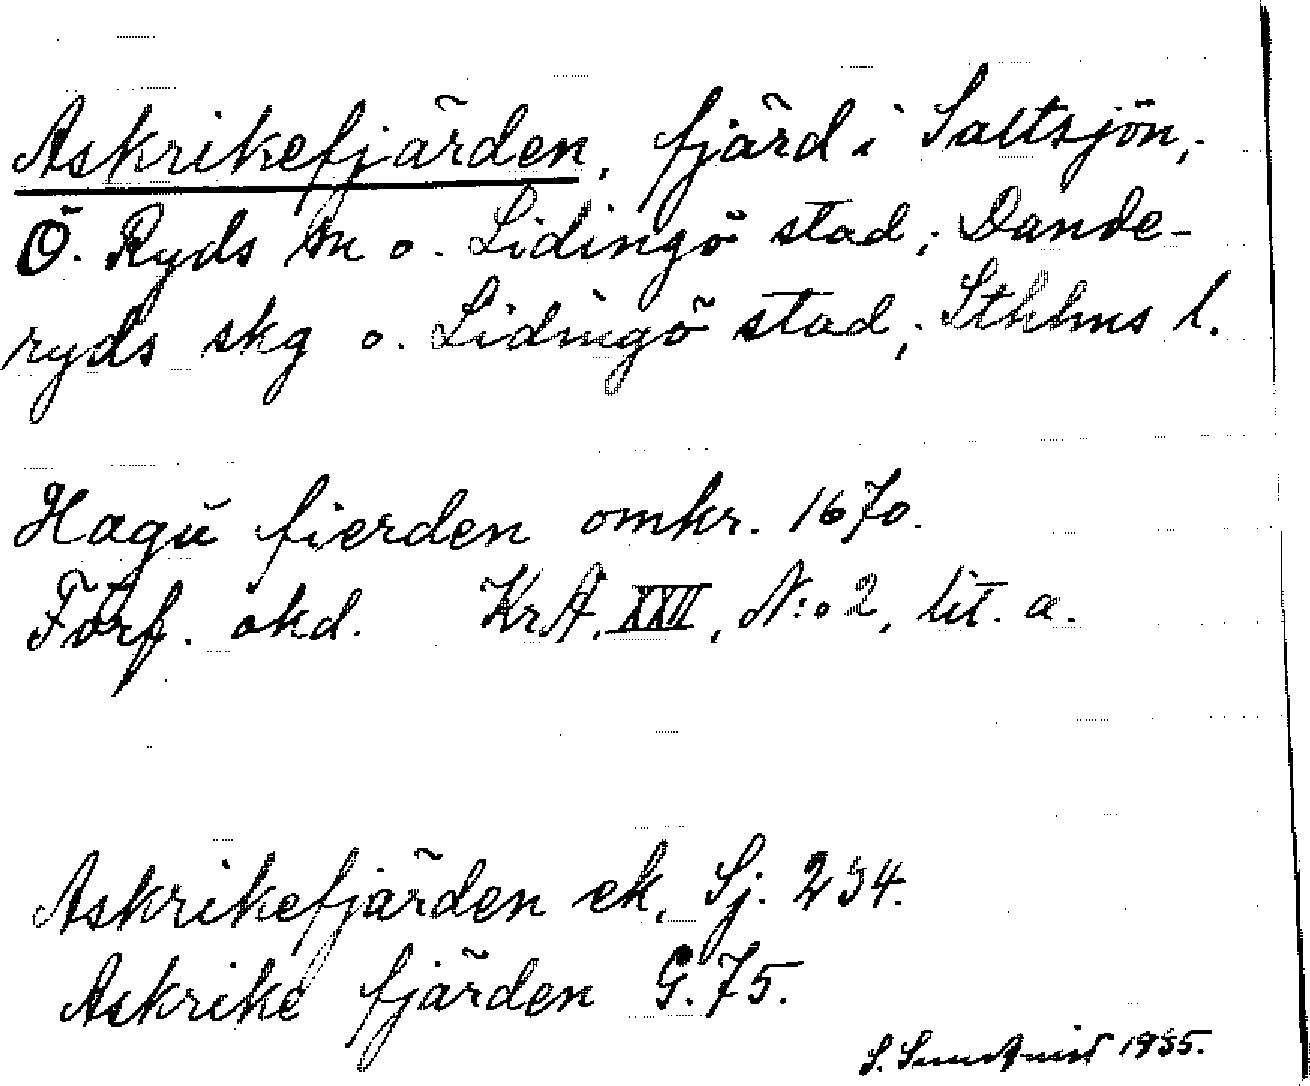 Askrikefjärden, fjärd i Saltsjön,
Ö. Ryds sn o. Lidingö stad; Dande-
ryds skg o. Lidingö stad; Sthlms l.
Hagu fierden omkr. 1670.
Förf. okd. KrA. XXVI, N:o 2, lit. a.
Askrikefjärden ek. Sj. 234.
Askrike fjärden G. 75.
S. 1935.